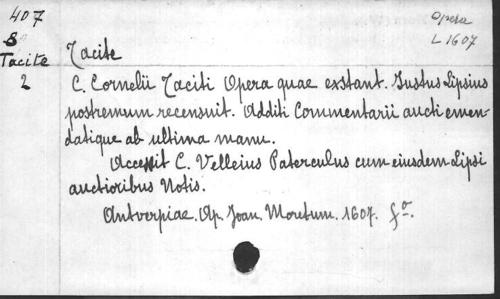 407
8
Tacite
2
Opera
L1607
Tacite
C. Cornelii Taciti Opera quae exstant. Justus Lipsius
postremum recensuit. Additi Commentarii aucti emen-
datique ab ultima manu.
Accessit C. Velleius Paterculus cum eiusdem Lipsi
auctioribus Notis.
Antverpiae. Ap. Joan. Moretum. 1607. fo.